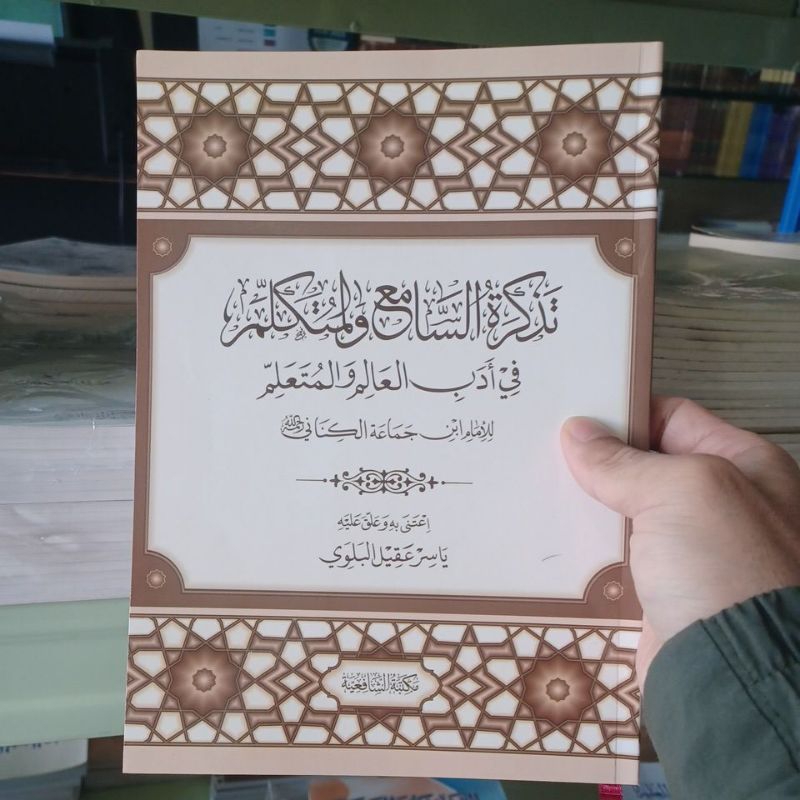 تَذْكِرَةُ السَّامِعِ وَالمُتَكَلِّمِ
فِي أَدَبِ العَالِمِ وَالمُتَعَلِّمِ
لِلإِمَامِ ابْنِ جَمَاعَة الكِنَانِي رحمه الله
اِعْتَنَى بِهِ وَعَلَّقَ عَلَيْهِ
يَاسِر عَقِيْل البَلَوِي
مَكْتَبَةُ الشَّافِعِيَّة